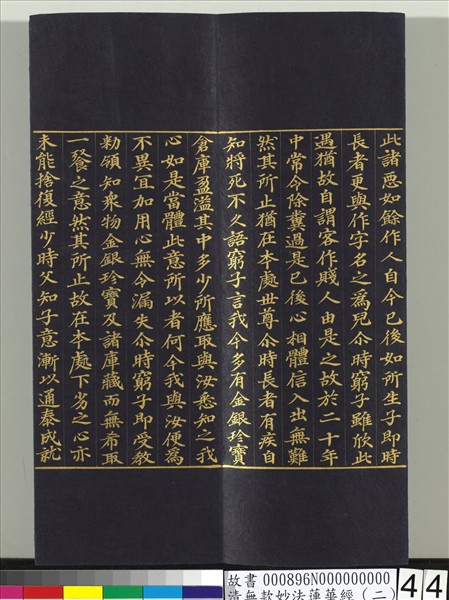 此諸惡如餘作人自今已後如所生子即時
長者更與作字名之為兒尒時窮子雖欣此
遇猶故自謂客作賤人由是之故於二十年
中常令除糞過是已後心相體信入出無難
然其所止猶在本處世尊尒時長者有疾自
知將死不久語窮子言我今多有金銀珍寶
倉庫盈溢其中多少所應取與汝悉知之我
心如是當體此意所以者何今我與汝便為
不異宜加用心無令漏失尒時窮子即受教
勑領知衆物金銀珍寶及諸庫藏而無希取
一餐之意然其所止故在本處下劣之心亦
未能捨復經少時父知子意漸以通泰成就
故書 000896N000000000
清無款妙法蓮華經(二)
44